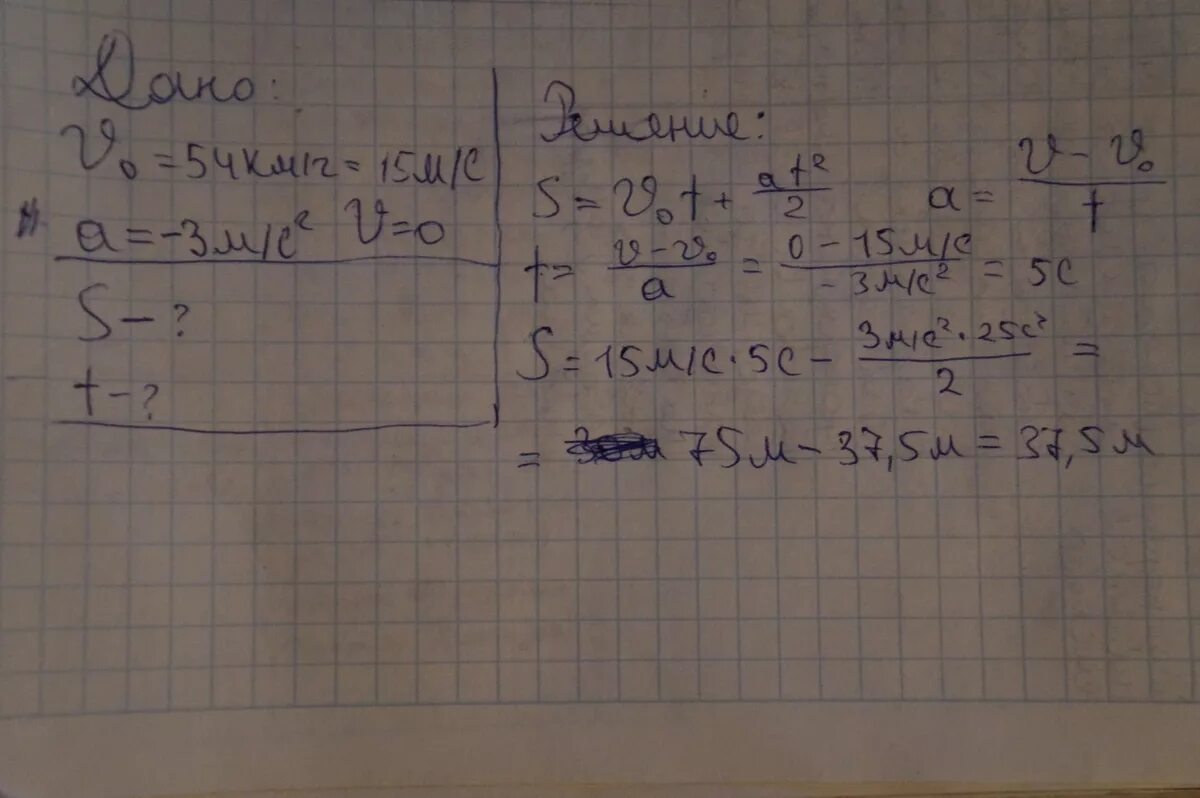 Дано:
V₀ = 54км/г = 15м/с
a = -3м/с² V=0
S - ?
t - ?
Решение:
S = V₀t + at²/2 a = V - V₀/t
t = v - v₀/a = 0 - 15м/с/-3м/с² = 5с
S = 15м/с · 5с - 3м/с² · 25с²/2 =
= 75м - 37,5м = 37,5м